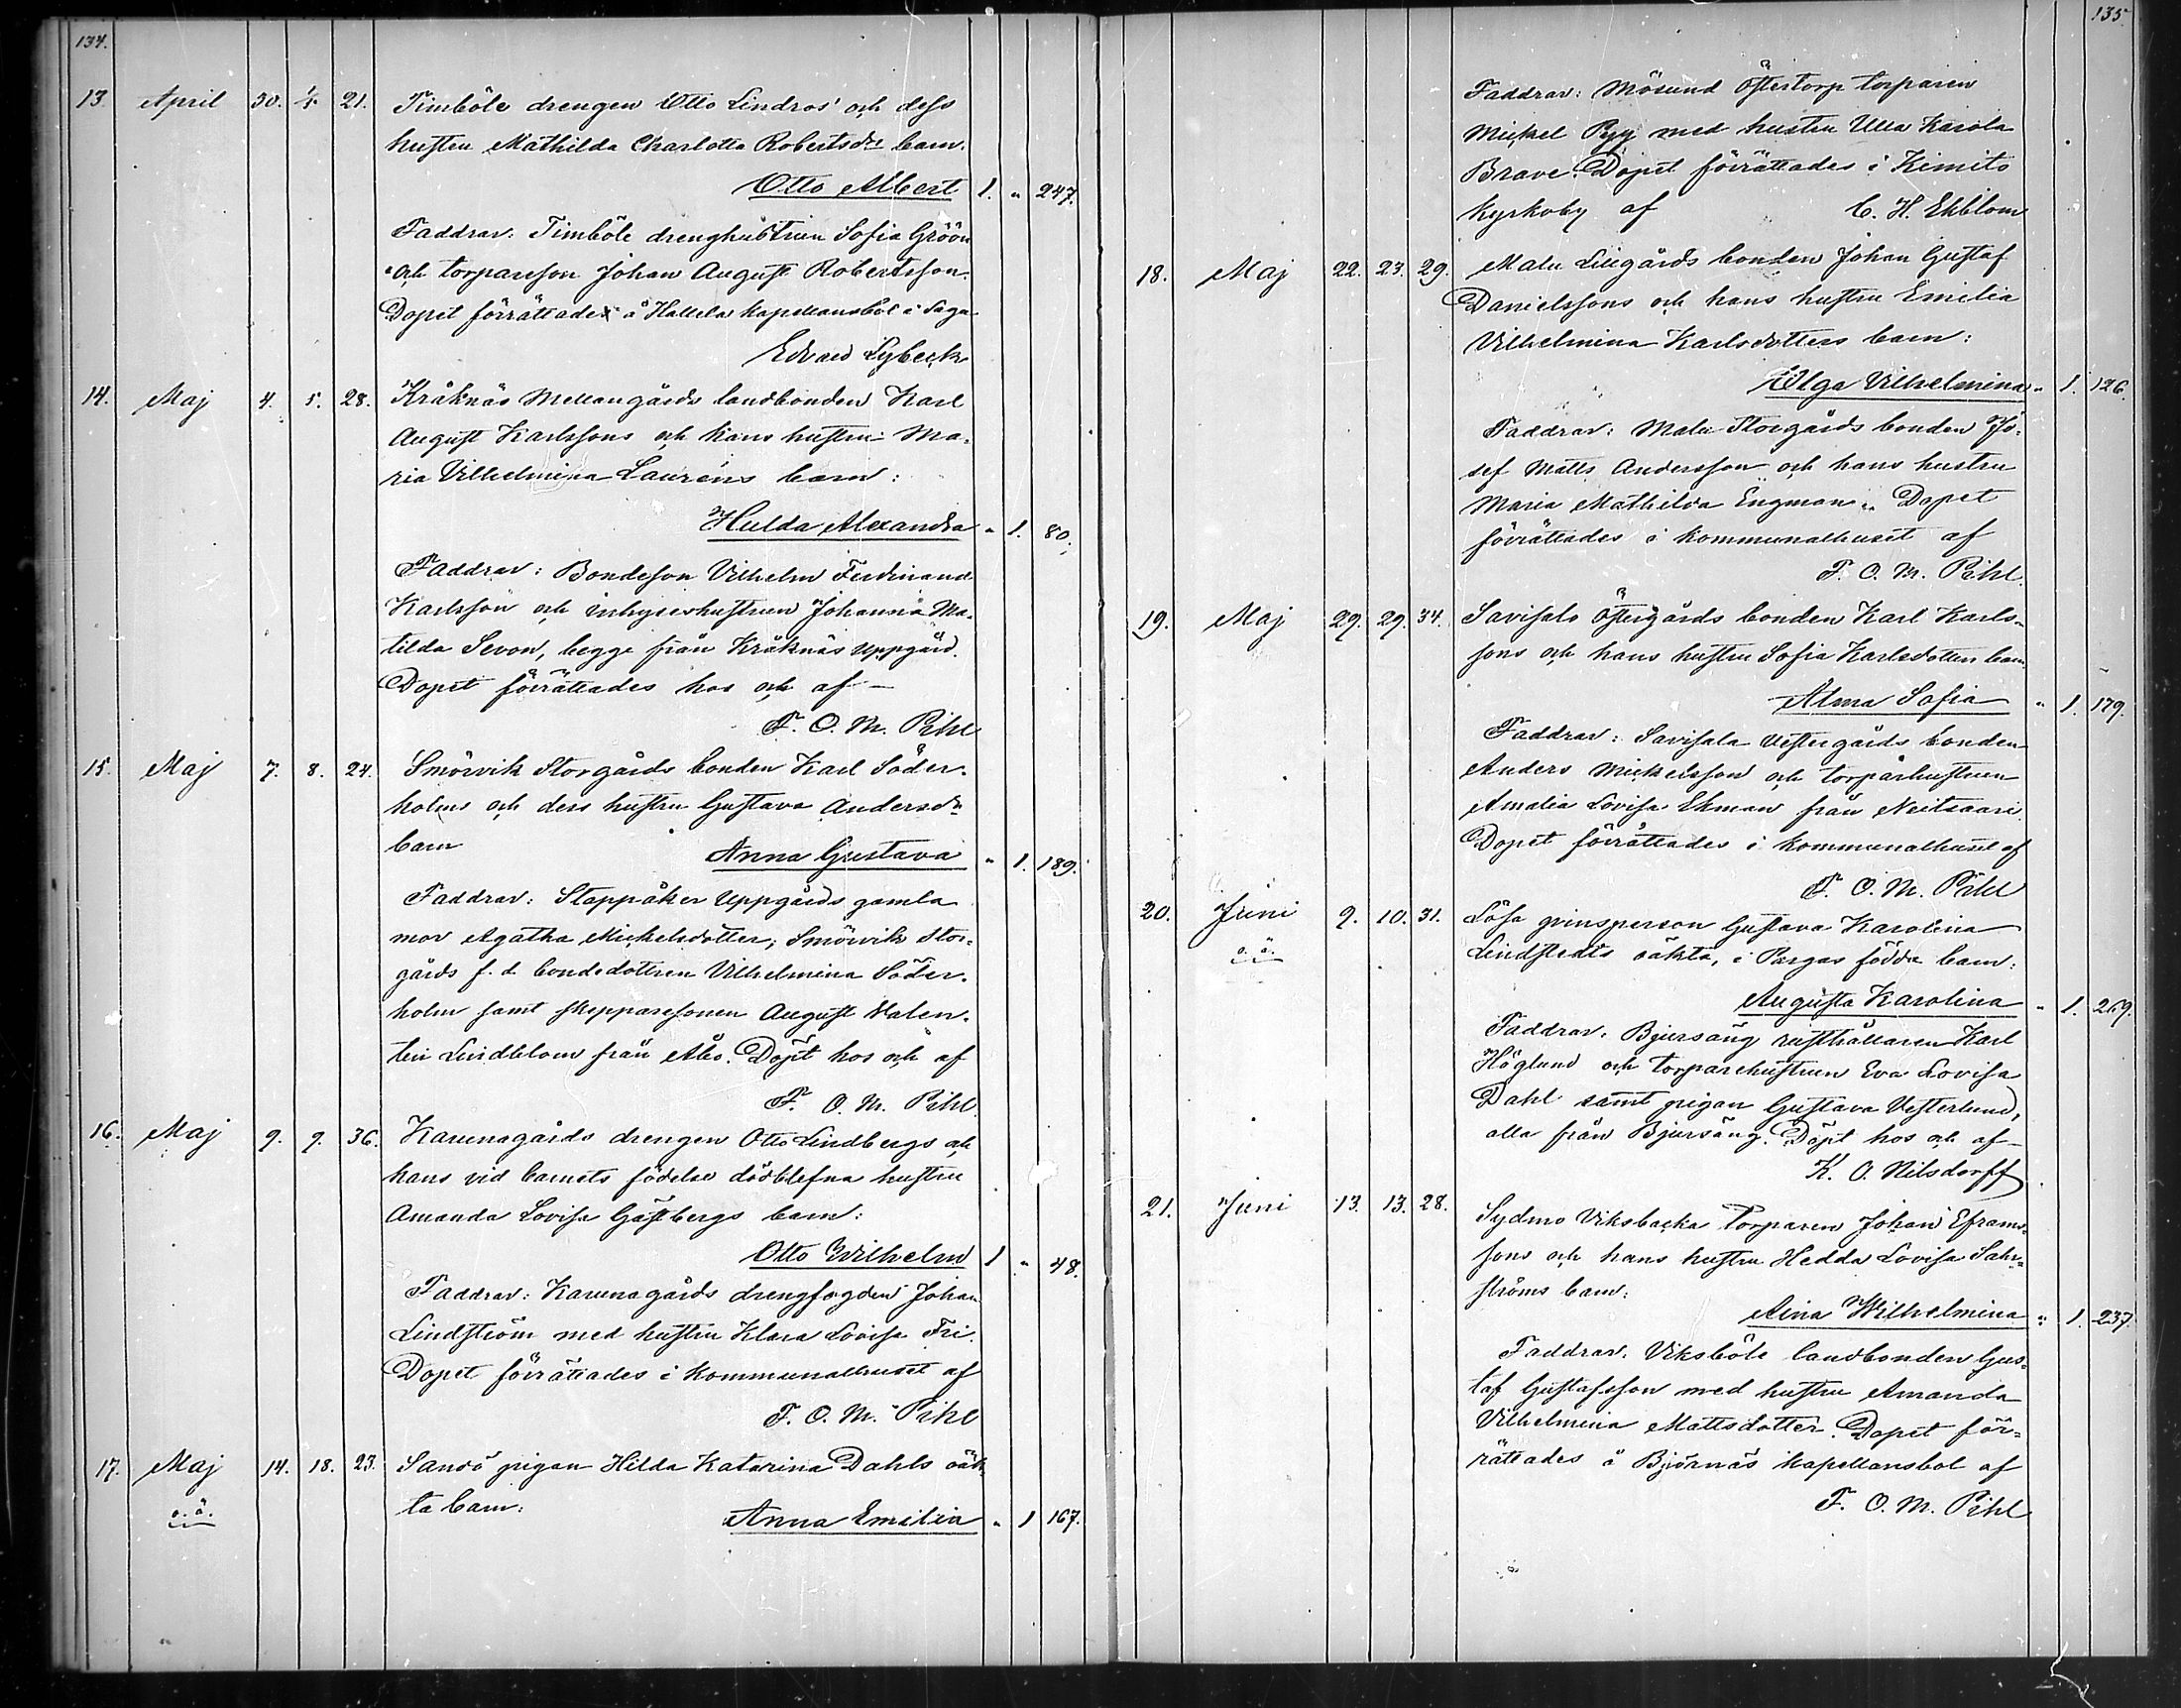 134.
13. April 30. 1/5. 21. Timböle drengen Otto Lindros' och dess
hustru Mathilda Charlotta Robertsdrs barn.
Otto Albert 1. " 247.
Faddrar: Timböle drenghustrun Sofia Gröön
och torpareson Johan August Robertsson.
Dopet förrättades å Hallela kapellansbol i Sagu
Edvard Lybeck
14. Maj 4. 5. 28. Kråknäs Mellangårds landbonden Karl
August Karlssons och hans hustru Ma-
ria Vilhelmina Lauréns barn:
Hulda Alexandra " 1. 80.
Faddrar: Bondeson Vilhelm Ferdinand
Karlsson och inhyseshustrun Johanna Ma-
tilda Sevon, begge från Kråknäs Uppgård.
Dopet förrättades hos och af
F. O. M. Pihl
15. Maj 7. 8. 24. Smörvik Storgårds bonden Karl Söder-
holms och dess hustru Gustava Andersdrs
barn Anna Gustava " 1. 189.
Faddrar: Stappåker Uppgårds gamla
mor Agatha Mickelsdotter, Smörvik Stor-
gårds f. d. bondedottren Vilhelmina Söder-
holm samt skepparesonen August Valen-
tin Lindblom från Åbo. Döpt hos och af
F. O. M. Pihl
16. Maj 9. 9. 36. Karunagårds drengen Otto Lindbergs och
hans vid barnets födelse dödblefna hustru
Amanda Lovisa Gästbergs barn:
Otto Wilhelm 1 " 48.
Faddrar: Karunagårds drengfogden Johan
Lindström med hustru Klara Lovisa Fri.
Dopet förrättades i kommunalhuset af
F. O. M. Pihl
17. Maj 14. 18. 23. Sandö pigan Hilda Katarina Dahls oäk-
o. ä. ta barn: Anna Emilia " 1 167.
135
Faddrar: Mösund Östertorp torparen
Mickel Pyy med hustru Ulla Karola
Brave. Dopet förrättades i Kimito
kyrkoby af C. H. Ekblom
18. Maj 22. 23. 29. Malu Lillgårds bonden Johan Gustaf
Danielssons och hans hustru Emilia
Vilhelmina Karlsdotters barn:
Olga Vilhelmina " 1. 126.
Faddrar: Malu Storgårds bonden Jo-
sef Matts Andersson och hans hustru
Maria Mathilda Engman. Dopet
förrättades i kommunalhuset af
F. O. M. Pihl.
19. Maj 29. 29. 34. Savisalo Östergårds bonden Karl Karls-
sons och hans hustru Sofia Karlsdotters barn
Alma Sofia " 1. 179.
Faddrar: Savisalo Vestergårds bonden
Anders Mickelsson och torparhustrun
Amalia Lovisa Ekman från Neitsaari.
Dopet förrättades i kommunalhuset af
F. O. M. Pihl
20. Juni 9. 10. 31. Lösa qvinsperson Gustava Karolina
o. ä. Lindstedts oäkta, i Pargas födda barn:
Augusta Karolina " 1. 269.
Faddrar. Bjersäng rusthållaren Karl
Höglund och torparehustrun Eva Lovisa
Dahl samt pigan Gustava Vesterlund,
alla från Bjersäng. Döpt hos och af
K. O. Nilsdorff
21. Juni 13. 13. 28. Sydmo Viksbacka torparen Johan Eframs-
sons och hans hustru Hedda Lovisa Sahl-
ströms barn:
Aina Wilhelmina " 1. 237.
Faddrar. Viksböle landbonden Gus-
taf Gustafsson med hustru Amanda
Vilhelmina Mattsdotter. Dopet för-
rättades å Björnäs kapellansbol af
F. O. M. Pihl